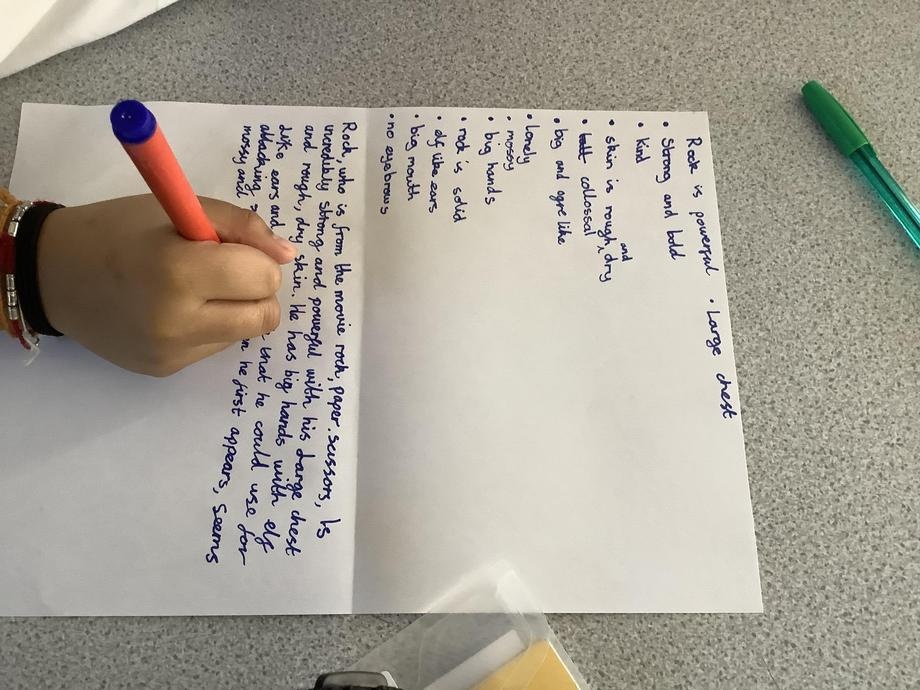 Rock is powerful . Large chest
• Strong and bold
• Kind
• skin is rough, and dry
• collossal
• big and ogre like
• lonely
• mossy
• big hands
• rock is solid
• elf like ears
• big mouth
• no eyebrows
Rock, who is from the movie rock, paper. scissors, Is
incredibly strong and powerful with his Large chest
and rough, dry skin. He has big hands with elf
Like ears and that he could use for
attacking he first appears, seems
mossy and